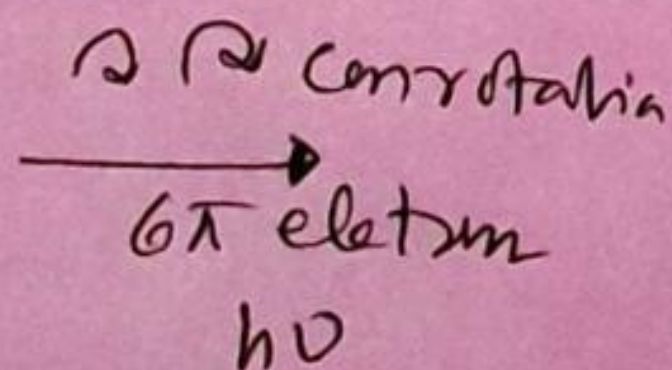 conrotatia
6π eletrm
hν